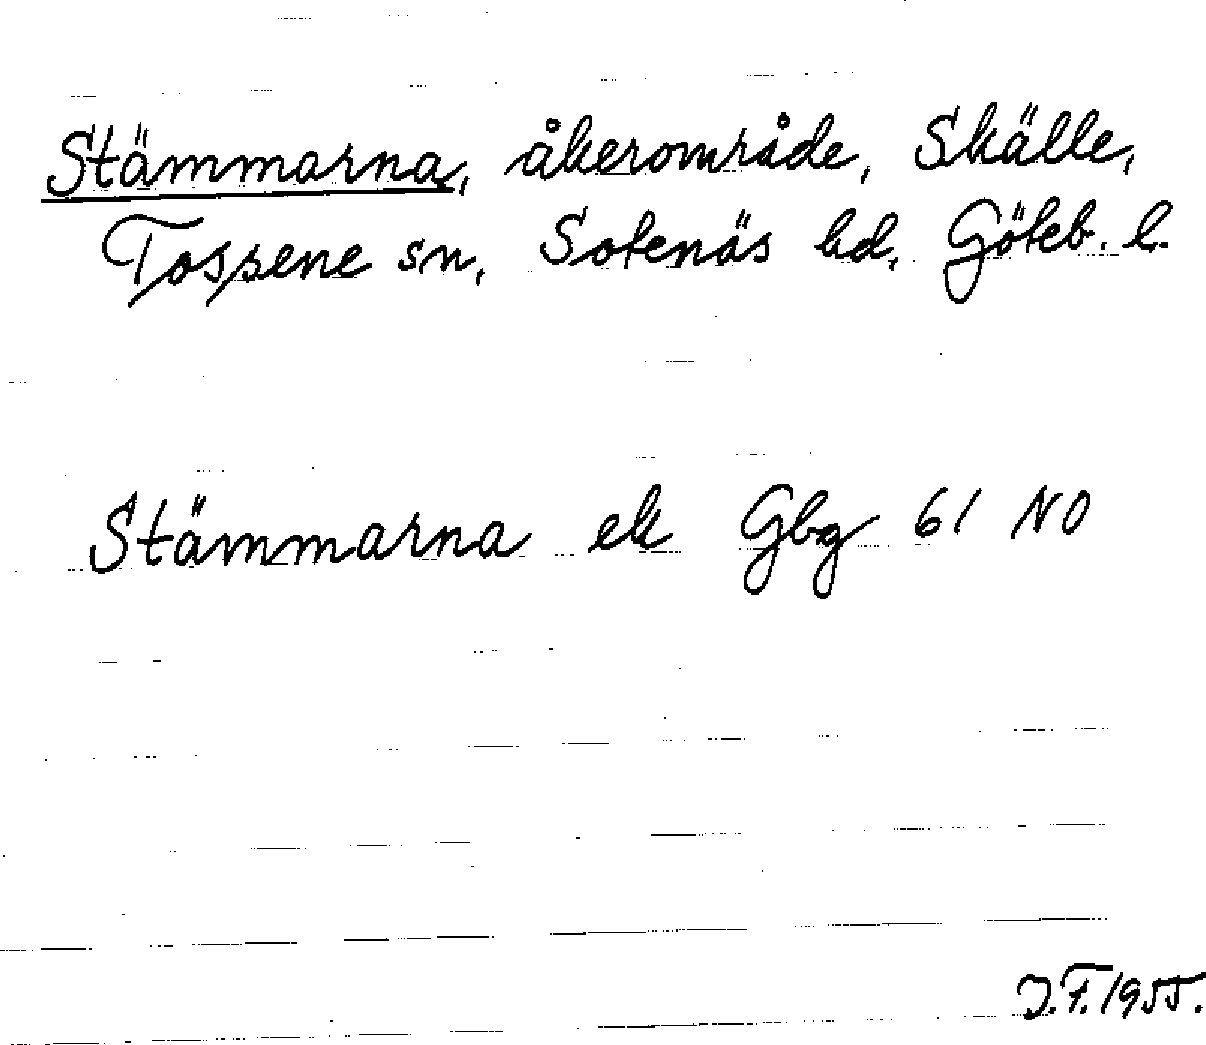 Stämmarna, åkerområde, Skälle,
Tossene sn, Sotenäs hd, Göteb. l.
Stämmarna ek Gbg 61 NO
J.F. 1955.